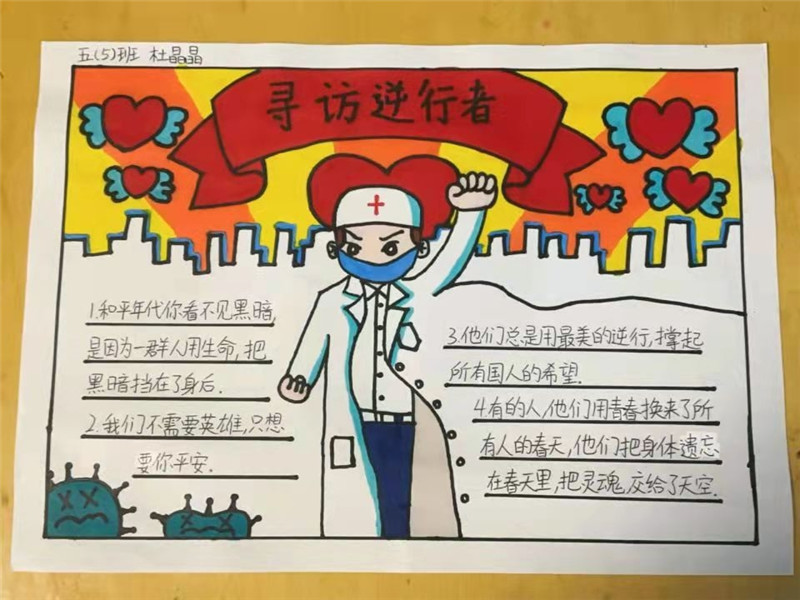 五(5)班 杜晶晶
寻访逆行者
1.和平年代你看不见黑暗,
是因为一群人用生命,把
黑暗挡在了身后.
2.我们不需要英雄,只想
要你平安.
3.他们总是用最美的逆行,撑起
所有国人的希望.
4.有的人,他们用青春换来了所
有人的春天,他们把身体遗忘
在春天里,把灵魂,交给了天空.